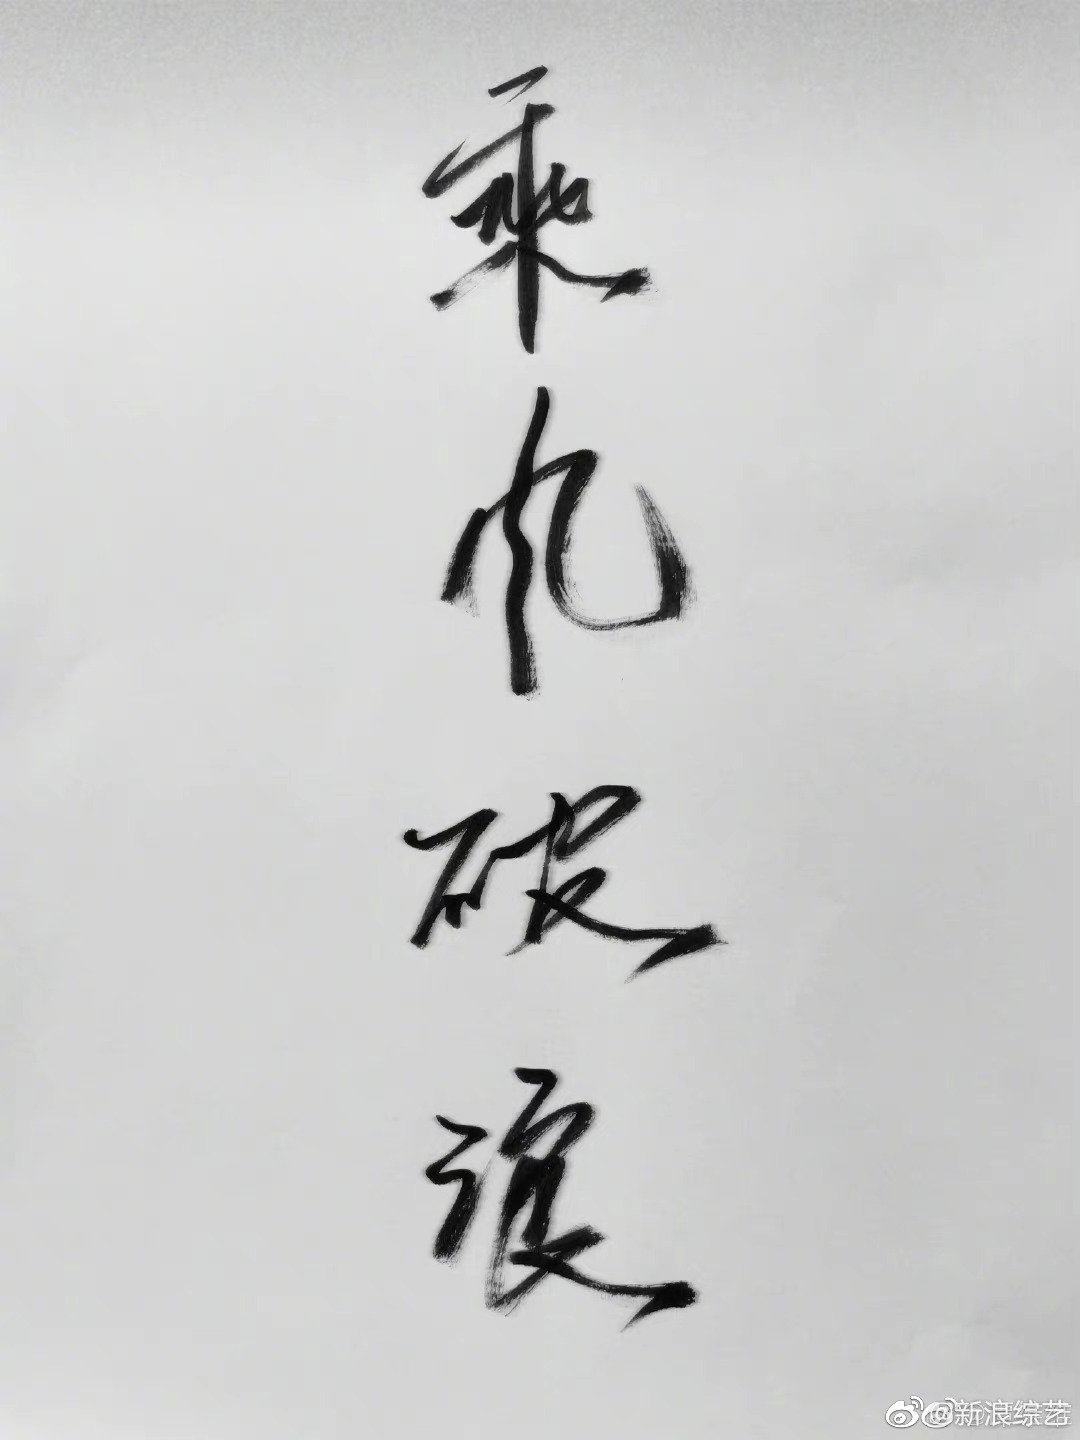 乘风破浪
@新浪综艺